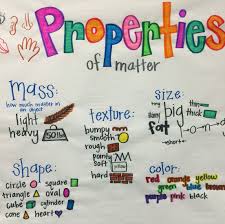 Properties
of matter
mass:
how much matter in
an object
light
heavy
50lb
texture:
bumpy
smooth
rough
pointy
soft
hard
size:
tiny
big
thick
fat
short
shape:
circle square
triangle oval
cube cylinder
cone heart
color:
red orange yellow
green blue purple brown